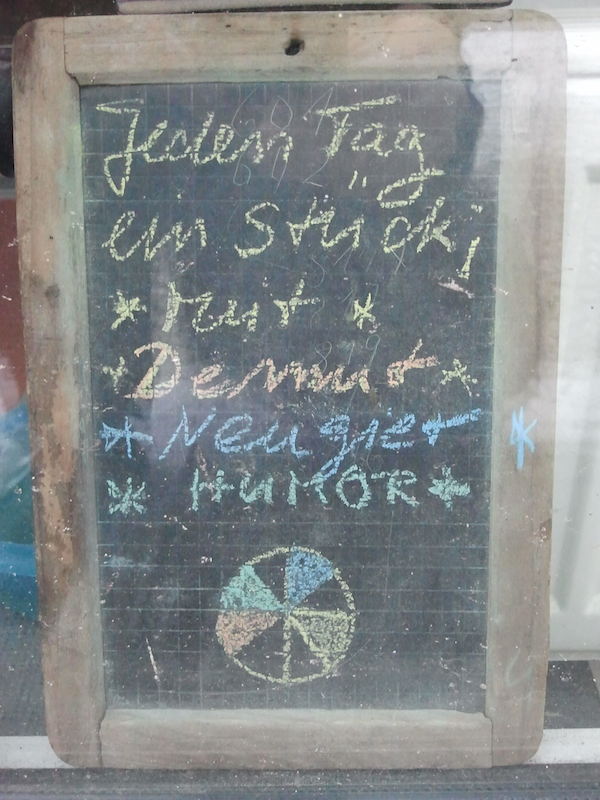 Jeden Tag
ein Stück
* Mut *
* Demut *
* Neugier *
* HUMOR *